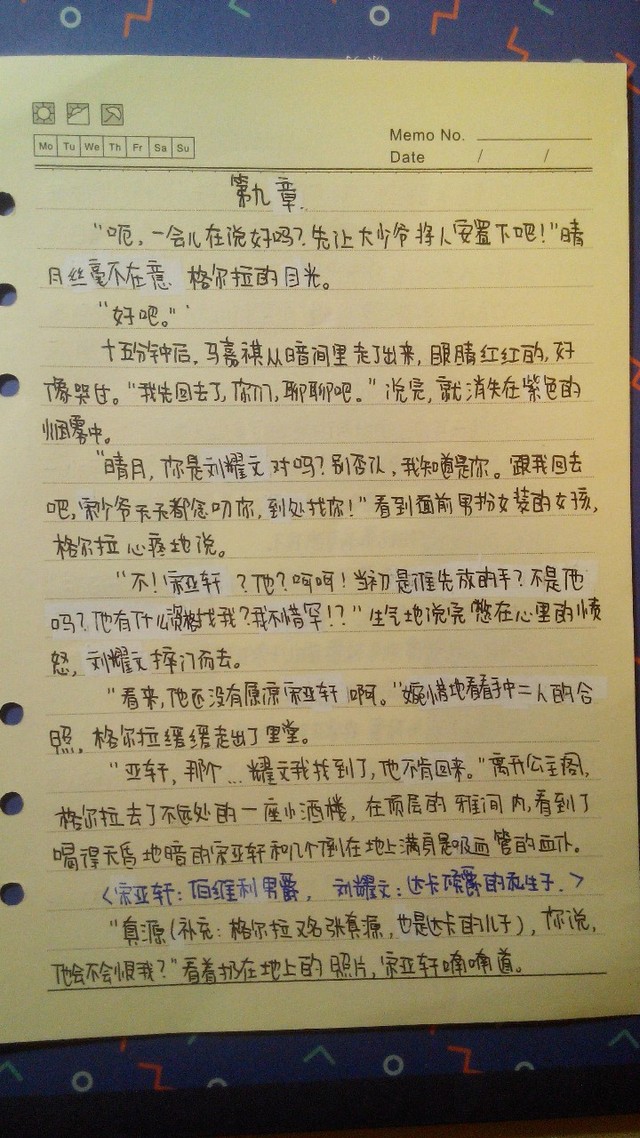 Mo Tu We Th Fr Sa Su
Memo No.
Date / /
第九章.
“呃,一会儿在说好吗?先让大少爷将人安置下吧!”晴
月丝毫不在意 格尔拉的目光。
“好吧。”
十五分钟后,马嘉祺从暗间里走了出来,眼睛红红的,好
像哭过。“我先回去了,你们,聊聊吧。”说完,就消失在紫色的
烟雾中。
“晴月,你是刘耀文对吗?别否认,我知道是你。跟我回去
吧,宋少爷天天都念叨你,到处找你!”看到面前男扮女装的女孩,
格尔拉心疼地说。
“不!宋亚轩?他?呵呵!当初是谁先放的手?不是他
吗?他有什么资格找我?我不惜罕!?”生气地说完憋在心里的愤
怒,刘耀文摔门而去。
“看来,他还没有原凉宋亚轩啊。”惋惜地看看手中二人的合
照,格尔拉缓缓走出了里堂。
“亚轩,那个…耀文我找到了,他不肯回来。”离开公主阁,
格尔拉去了不远处的一座小酒楼,在顶层的雅间内,看到了
喝得天昏地暗的宋亚轩和几个倒在地上满身是吸血管的血仆。
<宋亚轩:伯维利男爵, 刘耀文:达卡侯爵的私生子.>
“真源(补充:格尔拉又名张真源,也是达卡的儿子),你说,
他会不会恨我?”看着扔在地上的照片,宋亚轩喃喃道。